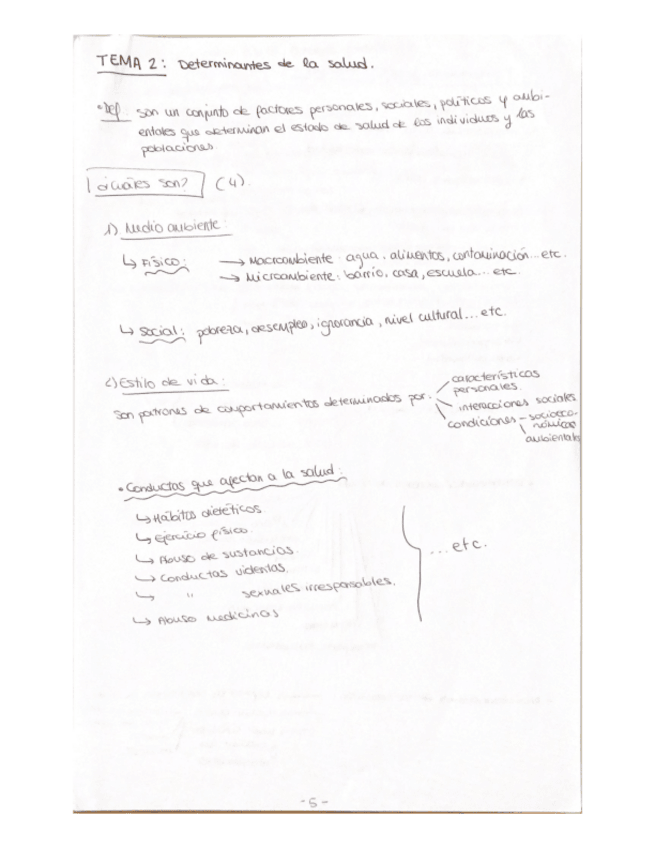 TEMA 2: Determinantes de la salud.
• Def son un conjunto de factores personales, sociales, políticos y ambi-
entales que determinan el estado de salud de los individuos y las
poblaciones
¿Cuáles son? (4).
1) Medio ambiente:
↳ Físico: → Macroambiente: agua, alimentos, contaminación...etc.
→ Microambiente: barrio, casa, escuela... etc.
↳ Social: pobreza, desempleo, ignorancia, nivel cultural... etc.
2) Estilo de vida:
características
personales.
Son patrones de comportamientos determinados por: interacciones sociales
condiciones - socioeco-
nómicas
ambientales
• Conductas que afectan a la salud:
↳ Hábitos dietéticos.
↳ Ejercicio físico.
↳ Abuso de sustancias.
↳ Conductas violentas. ...etc.
↳ " sexuales irresponsables.
↳ Abuso medicinas
- 5 -